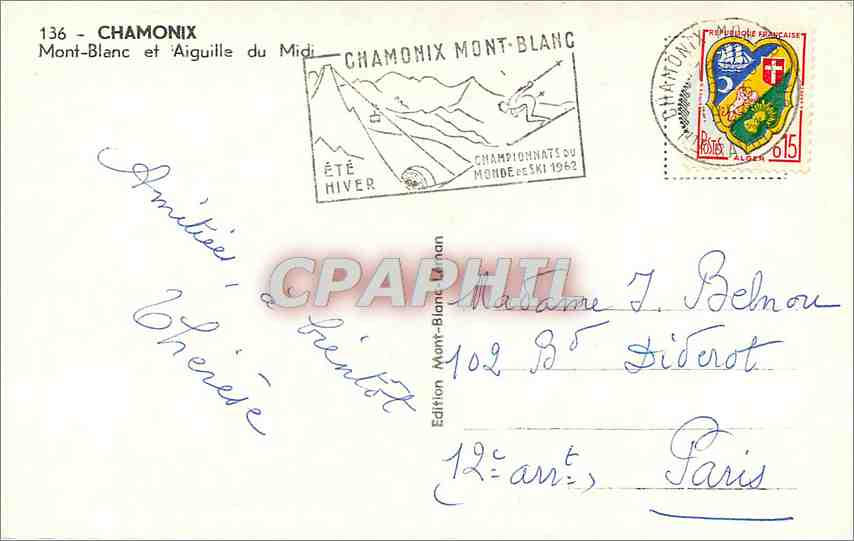 136 - CHAMONIX
Mont-Blanc et Aiguille du Midi
CHAMONIX MONT-BLANC
ÉTÉ
HIVER
CHAMPIONNATS DU
MONDE DE SKI 1962
CHAMONIX MO
REPUBLIQUE FRANÇAISE
POSTES
0,15
ALGER
Amitiés, à bientôt
Thérèse
CPAPHTI
Edition Mont-Blanc Léman
Madame J. Belnou
102 Bd Diderot
(12e arrt)
Paris